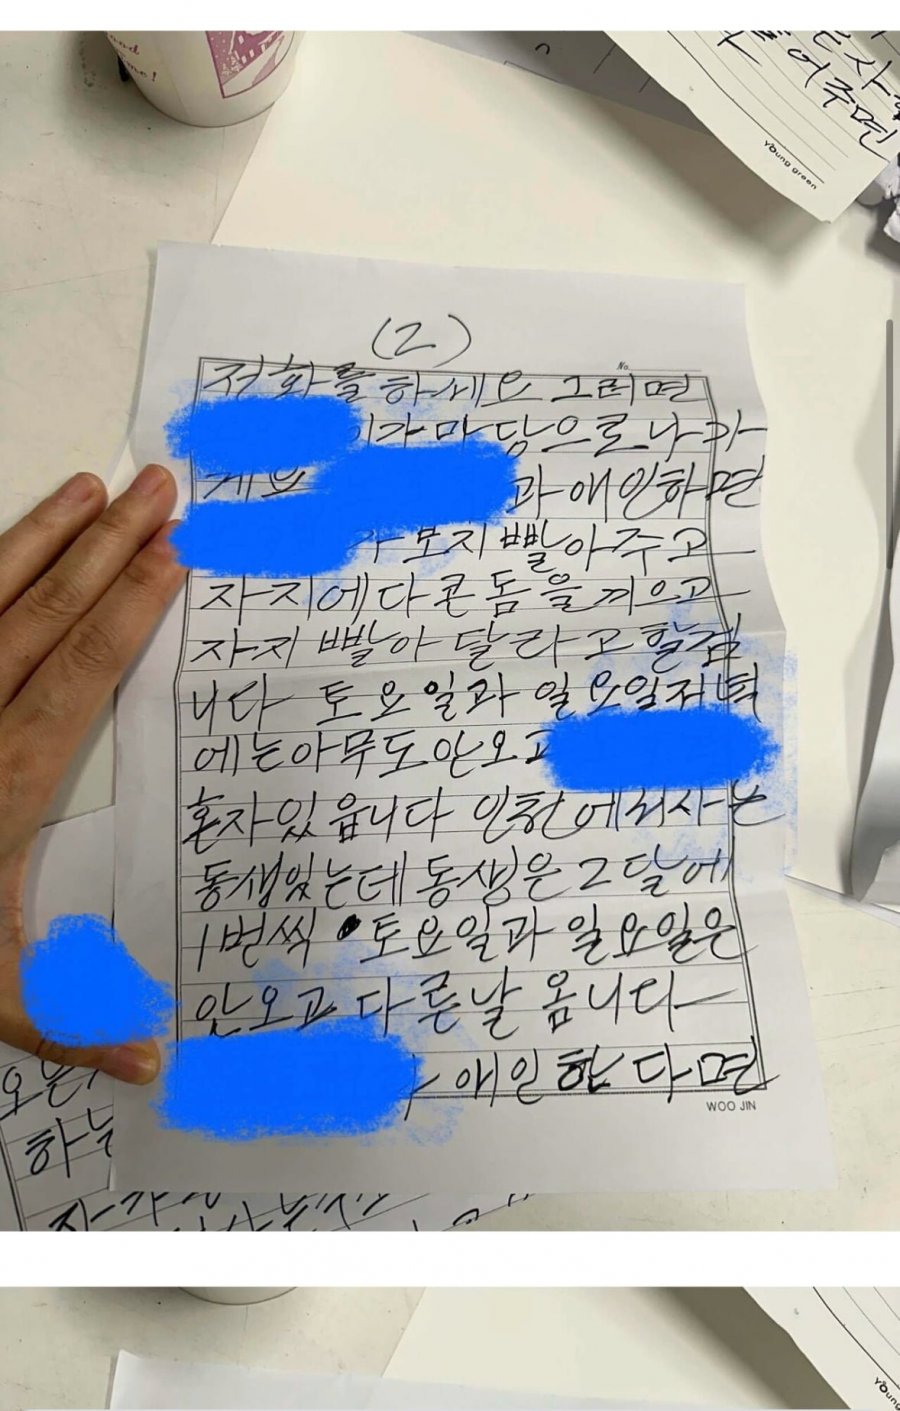 ood
me!
어주면
Young green
(2)
No.
저화를하세요 그러면
가마당으로나가
과애인하면
보지빨아주고
자지에다콘돔을끼우고
자지 빨아 달라고할겁
니다 토요일과 일요일저녁
에는아무도안오고
혼자있읍니다 인천에서사는
동생있는데동생은2달에
1번씩 토요일과 일요일은
안오고 다른날 옵니다
애인한다면
WOO JIN
하는